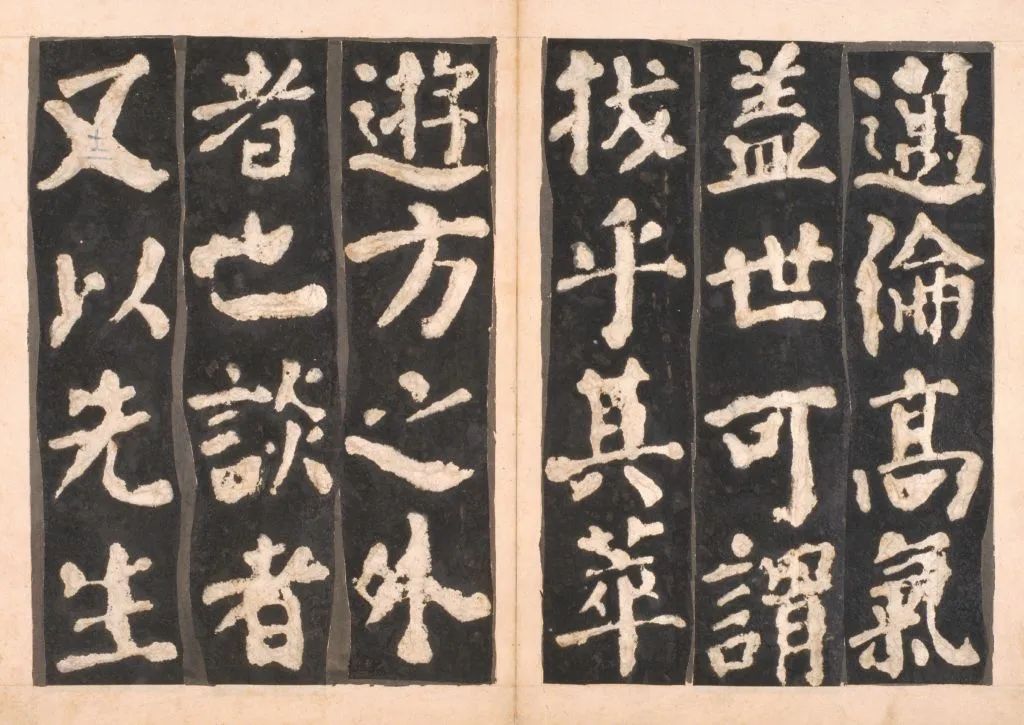 邁倫髙氣
盖世可謂
拔乎其萃
遊方之外
者也談者
又以先生